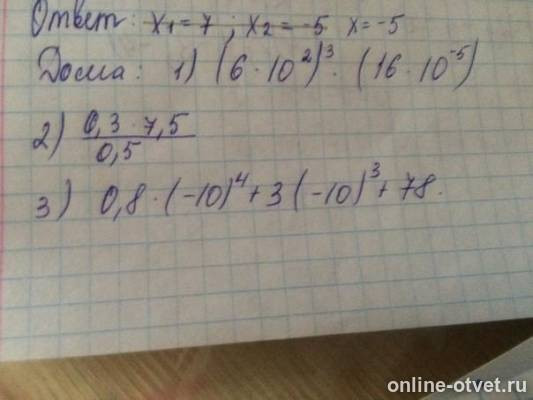 Ответ: x₁ = 7 ; x₂ = -5 x = -5
Дома: 1) (6 · 10²)³ · (16 · 10⁻⁵)
2) 0,3 · 7,5
0,5
3) 0,8 · (-10)⁴ + 3 (-10)³ + 78.
online-otvet.ru